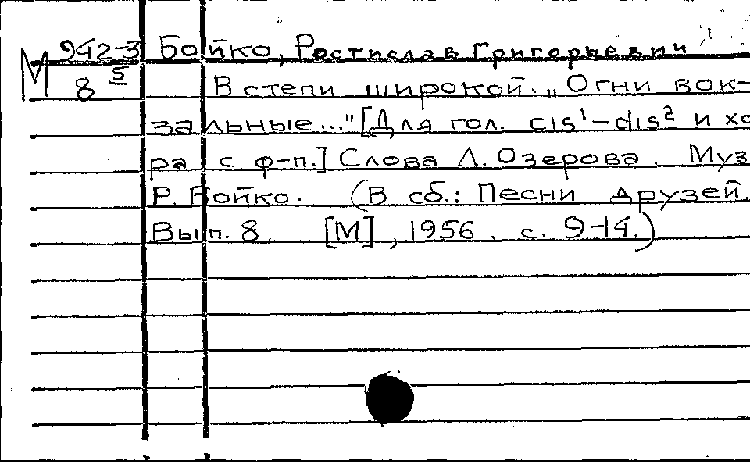 М 942-3 Бойко, Ростислав Григорьевич
8 5 В степи широкой. „Огни вок-
зальные..." [Для гол. cis¹-dis² и хо
ра с ф-п.] Слова Л. Озерова. Муз
Р. Бойко. (В сб.: Песни друзей.
Вып. 8. [М], 1956. с. 9-14.)